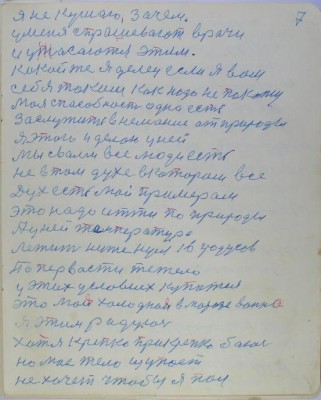 7
я не кушаю, зачем.
у меня спрашевают врачи
и ужасаются этим.
Какой же я делец если я вам
себя таким как надо не покажу
Моя способность одна есть
Заслужить внемание от природы
Я этого и делаю у ней
Мы с вами все люди есть
не в том духе в котором все
Дух есть мой примерам
это надо итти по природы
А у ней температура
Летит ниже нуля 16 градусов
По первасти тежело
у этих условиях купатся
это мой холодная в мороз ванна
Я этим радуюсь
Хотя крепко прикрепко боюсь
но мое тело щупает
не хочет чтобы я пол